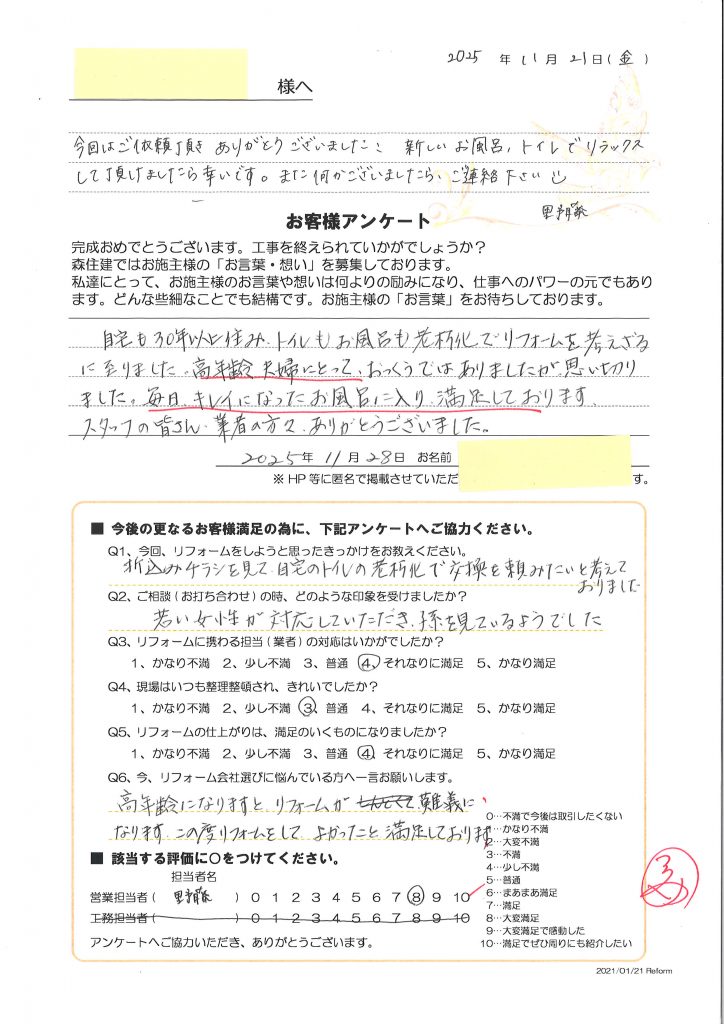 2025 年 11月 21日(金)
様へ
今回はご依頼頂き ありがとうございました! 新しいお風呂、トイレでリラックス
して頂けましたら幸いです。また何かございましたら、ご連絡下さい
お客様アンケート
完成おめでとうございます。工事を終えられていかがでしょうか?
森住建ではお施主様の「お言葉・想い」を募集しております。
私達にとって、お施主様のお言葉や想いは何よりの励みになり、仕事へのパワーの元でもあり
ます。どんな些細なことでも結構です。お施主様の「お言葉」をお待ちしております。
自宅も30年以上住み、トイレもお風呂も老朽化でリフォームを考えざる
に至りました。高年齢夫婦にとって、おっくうではありましたが思い切り
ました。毎日、キレイになったお風呂に入り、満足しております。
スタッフの皆さん、業者の方々、ありがとうございました。
2025年 11月 28日 お名前
※HP等に匿名で掲載させていただ す。
■ 今後の更なるお客様満足の為に、下記アンケートへご協力ください。
Q1、今回、リフォームをしようと思ったきっかけをお教えください。
折込みチラシを見て、自宅のトイレの老朽化で交換を頼みたいと考えて
おりました
Q2、ご相談(お打ち合わせ)の時、どのような印象を受けましたか?
若い女性が対応していただき、孫を見ているようでした
Q3、リフォームに携わる担当(業者)の対応はいかがでしたか?
1、かなり不満 2、少し不満 3、普通 4、それなりに満足 5、かなり満足
Q4、現場はいつも整理整頓され、きれいでしたか?
1、かなり不満 2、少し不満 3、普通 4、それなりに満足 5、かなり満足
Q5、リフォームの仕上がりは、満足のいくものになりましたか?
1、かなり不満 2、少し不満 3、普通 4、それなりに満足 5、かなり満足
Q6、今、リフォーム会社選びに悩んでいる方へ一言お願いします。
高年齢になりますと、リフォームが 難義に
なります。この度リフォームをして よかったと満足しております
■ 該当する評価に○をつけてください。
担当者名
営業担当者( ) 0 1 2 3 4 5 6 7 8 9 10
工務担当者( ) 0 1 2 3 4 5 6 7 8 9 10
アンケートへご協力いただき、ありがとうございます。
0…不満で今後は取引したくない
1…かなり不満
2…大変不満
3…不満
4…少し不満
5…普通
6…まあまあ満足
7…満足
8…大変満足
9…大変満足で感動した
10…満足でぜひ周りにも紹介したい
2021/01/21 Reform